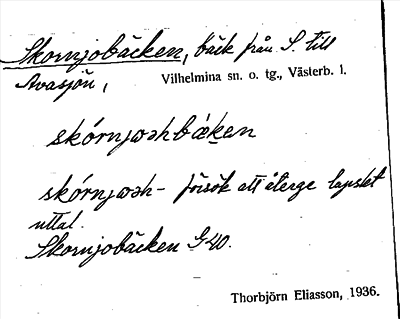 Skornjobäcken, bäck från S. till
Avasjön,
Vilhelmina sn. o. tg., Västerb. l.
skórnjwəhbǽḵen
skórnjwəh- försök att återge lapskt
uttal.
Skornjobäcken G 40.
Thorbjörn Eliasson, 1936.